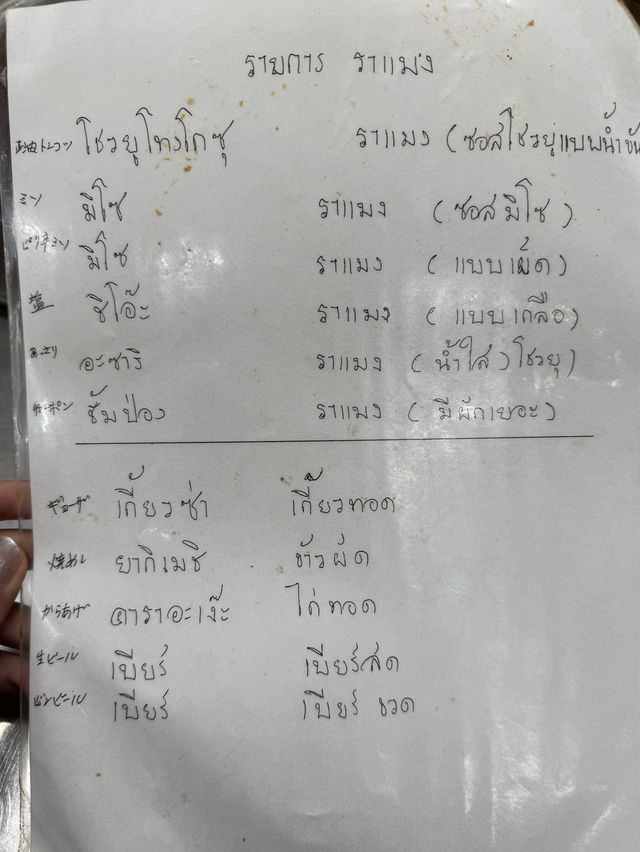 รายการ ราแมง
醤油トンコツ โชวยูโทงโกซุ ราแมง (ซอสโชวยูแบบน้ำข้น
ミソ มิโซ ราแมง (ซอสมิโซ)
ピリ辛ミソ มิโซ ราแมง (แบบเผ็ด)
塩 ชิโอ๊ะ ราแมง (แบบเกลือ)
あっさり อะซาริ ราแมง (น้ำใส) โชวยุ
チャンポン ชั้มป่อง ราแมง (มีผักเยอะ)
ギョーザ เกี้ยวซ่า เกี้ยวทอด
焼めし ยากิเมชิ ข้าวผัด
からあげ คาราอะเง๊ะ ไก่ทอด
生ビール เบียร์ เบียร์สด
ビンビール เบียร์ เบียร์ ขวด